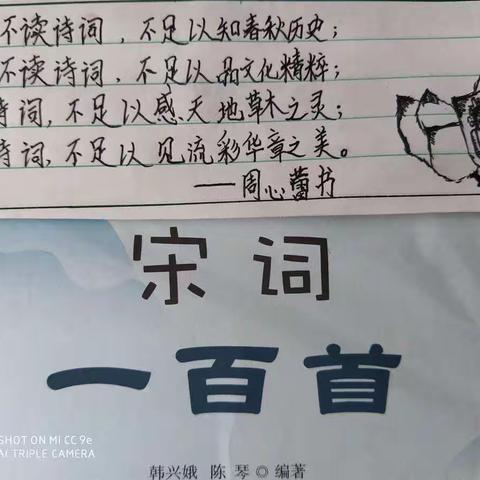 不读诗词，不足以知春秋历史；
不读诗词，不足以品文化精粹；
诗词，不足以感天地草木之灵；
诗词，不足以见流彩华章之美。
——周心蕾书
宋词
一百首
SHOT ON MI CC 9e
AI TRIPLE CAMERA
韩兴娥 陈琴◎编著